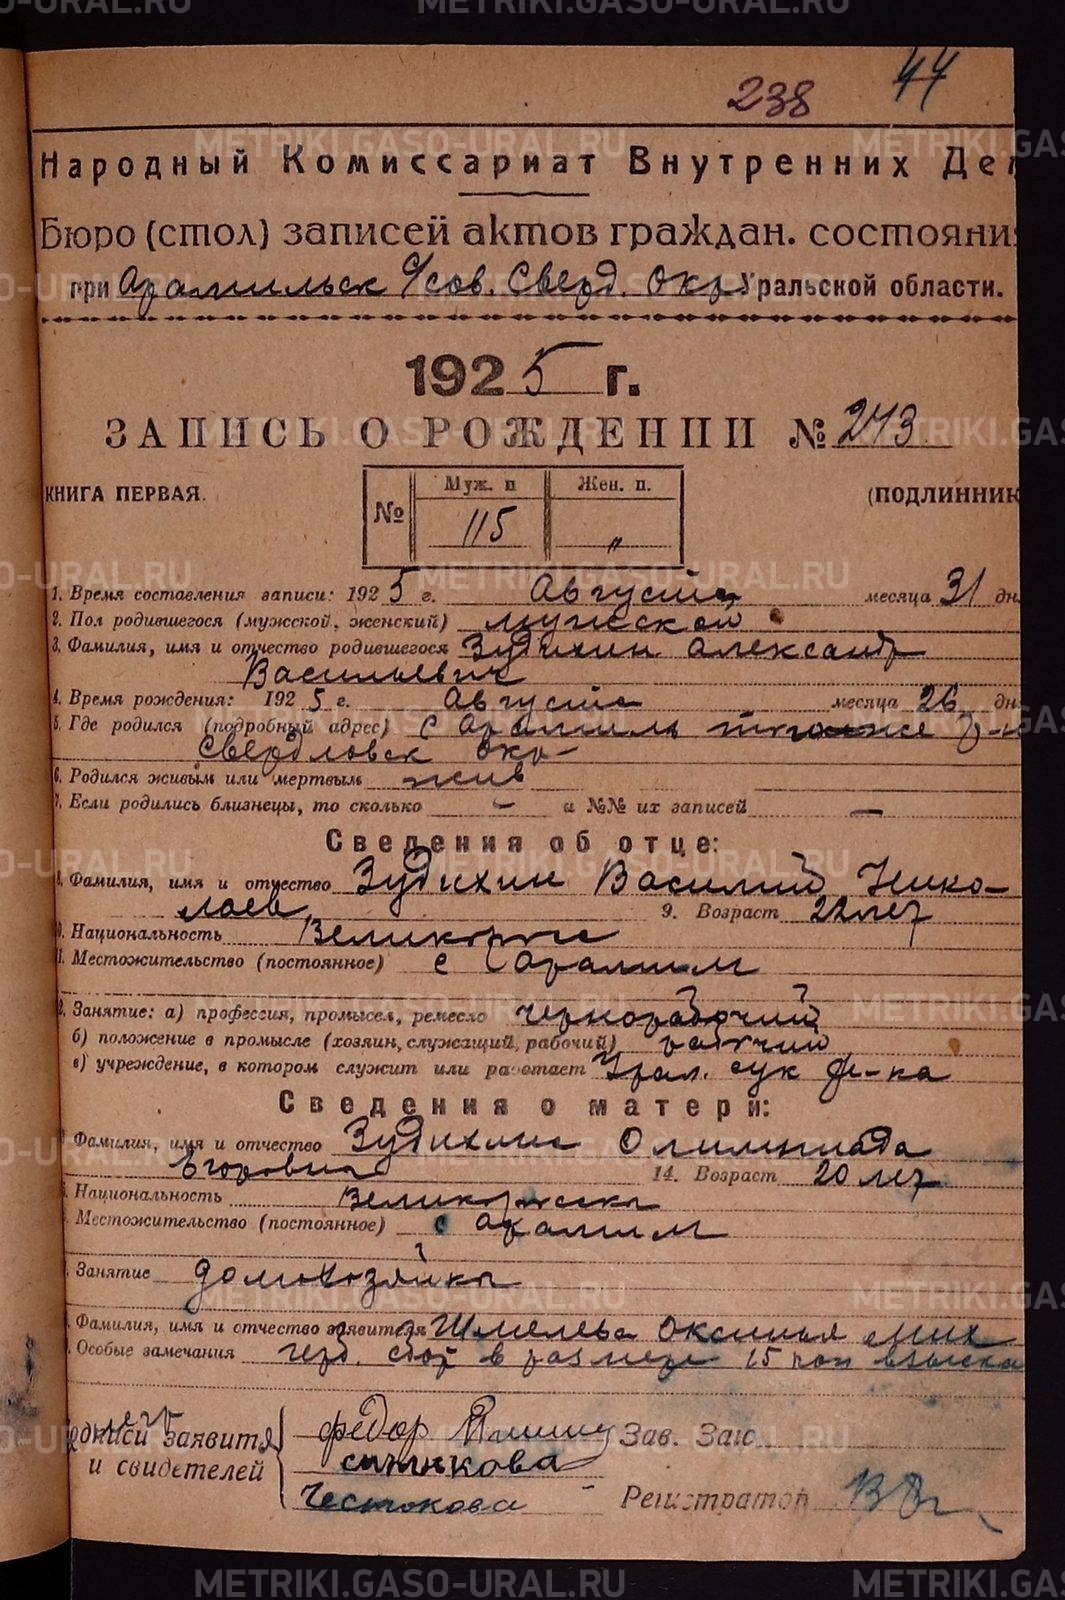 238 44
Народный Комиссариат Внутренних Дел
Бюро (стол) записей актов граждан. состояни
при Арамильск с/сов. Сверд. Окр Уральской области.
1925 г.
ЗАПИСЬ О РОЖДЕНИИ № 273
КНИГА ПЕРВАЯ. (ПОДЛИННИК
№ Муж. п Жен. п.
115 "
1. Время составления записи: 1925 г. Августа месяца 31 дн.
2. Пол родившегося (мужской, женский) мужской
3. Фамилия, имя и отчество родившегося Зудихин Александр
Васильевич
4. Время рождения: 1925 г. Августа месяца 26 дн.
5. Где родился (подробный адрес) с Арамиль тогоже р-н
Свердловск окр-
6. Родился живым или мертвым жив
7. Если родились близнецы, то сколько - и №№ их записей —
Сведения об отце:
Фамилия, имя и отчество Зудихин Василий Нико-
лаев. 9. Возраст 22 лет
Национальность Великоросс
1. Местожительство (постоянное) с Арамиль
2. Занятие: а) профессия, промысел, ремесло чернорабочий
б) положение в промысле (хозяин, служащий, рабочий) рабочий
в) учреждение, в котором служит или работает Урал. сук ф-ка
Сведения о матери:
Фамилия, имя и отчество Зудихина Олимпиада
Егоровна 14. Возраст 20 лет
Национальность Великоросска
Местожительство (постоянное) с Арамил
Занятие домохозяйка
Фамилия, имя и отчество заявителя Шмелева Оксинья Мих
Особые замечания герб. сбор в размере 15 коп взыска
подписи заявителя федор Зав. Загс
и свидетелей
Чистокова Регистратор
METRIKI.GASO-URAL.RU